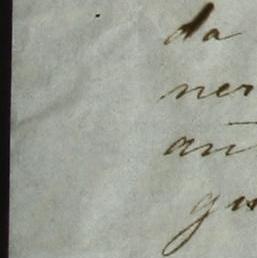 da
ner
an
gu